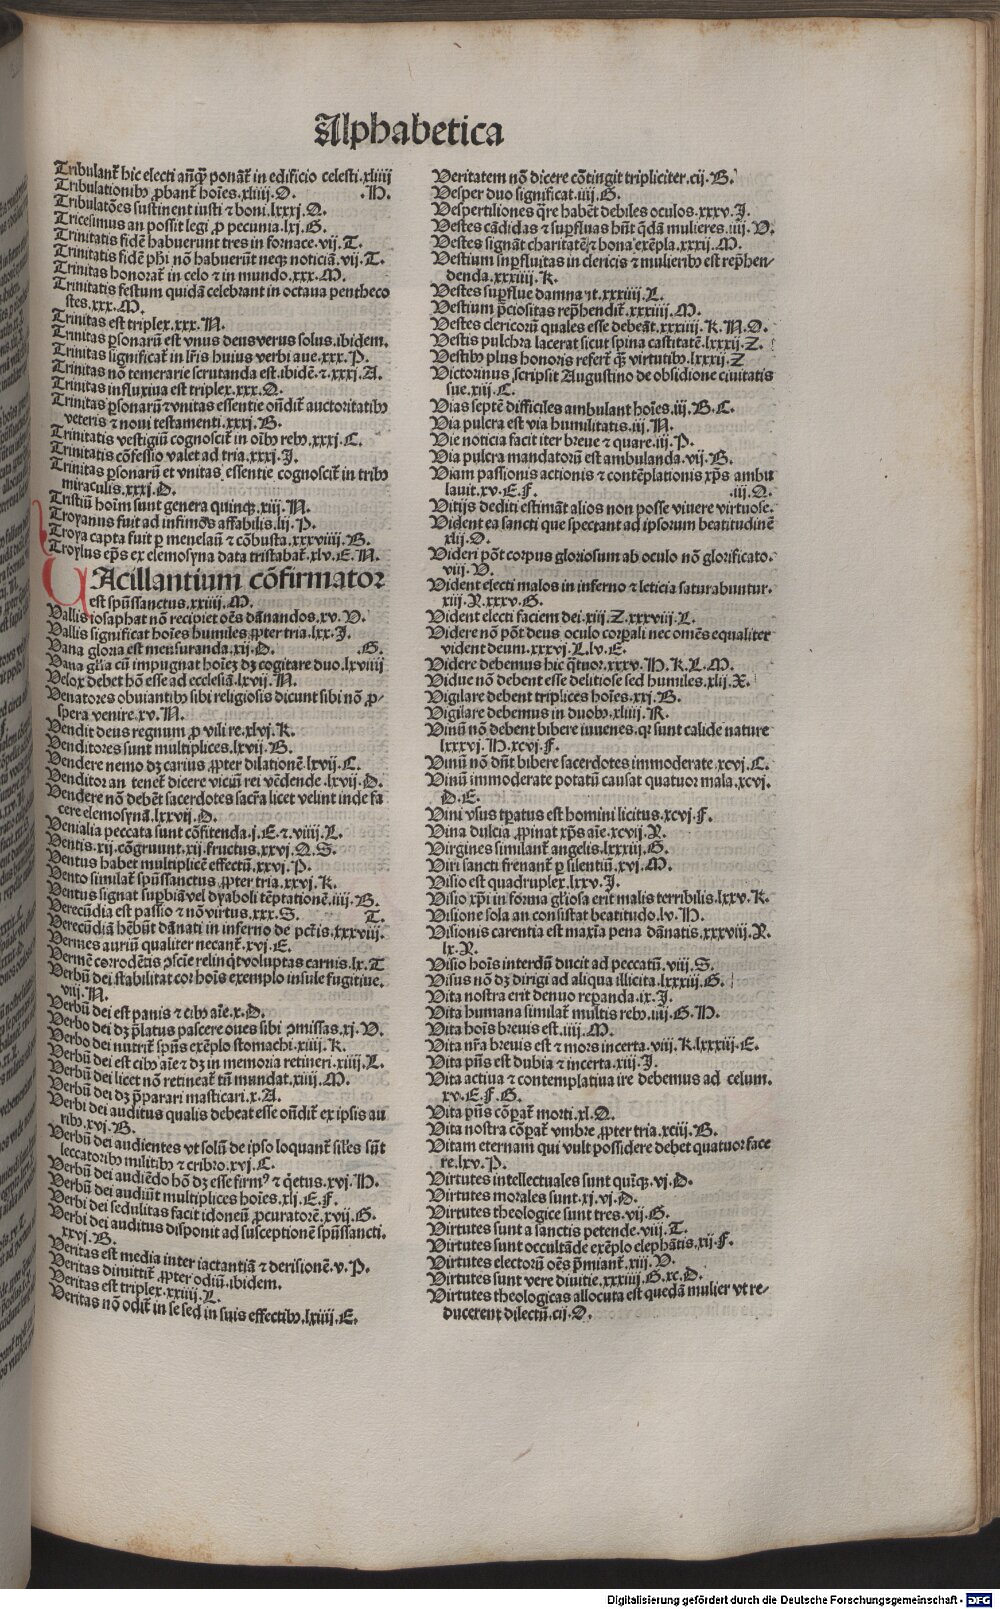 Alphabetica
Tribulant̃ hic electi añq̃ ponãt̃ in edificio celesti.xliiij
Tribulationibꝰ ꝓbant̃ hoĩes.xliiij.O. .H.
Tribulatões sustinent iusti ⁊ boni.lxxxj.Q.
Tricesimus an possit legi ꝓ pecunia.lxj.G.
Trinitatis fidẽ habuerunt tres in fornace.vij.T.
Trinitatis fidẽ phĩ nõ habuerũt neqꝫ noticiã.vij.T.
Trinitas honorat̃ in celo ⁊ in mundo.xxx.M.
Trinitatis festum quidã celebrant in octaua pentheco
stes.xxx.M.
Trinitas est triplex.xxx.N.
Trinitas ꝑsonarũ est vnus deus verus solus.ibidem.
Trinitas significat̃ in lr̃is huius verbi aue.xxx.P.
Trinitas nõ temerarie scrutanda est.ibidẽ.⁊.xxxj.A.
Trinitas influxiua est triplex.xxx.Q.
Trinitas ꝑsonarũ ⁊ vnitas essentie oñdit̃ auctoritatibꝰ
veteris ⁊ noui testamenti.xxxj.B.
Trinitatis vestigiũ cognoscit̃ in oĩbꝰ rebꝰ.xxxj.C.
Trinitatis cõfessio valet ad tria.xxxj.I.
Trinitas ꝑsonarũ et vnitas essentie cognoscit̃ in tribꝰ
miraculis.xxxj.D.
Tristiũ hoĩm sunt genera quinqꝫ.xiij.N.
Troyanus fuit ad infimos affabilis.lij.P.
Troya capta fuit ꝑ menelaũ ⁊ cõbusta.xxxviiij.B.
Troylus ep̃s ex elemosyna data tristabat̃.xlv.E.N.
VAcillantium cõfirmator
est sp̃ussanctus.xxiiij.M.
Vallis iosaphat non recipiet oẽs dãnandos.xv.V.
Vallis significat hoĩes humiles ꝓpter tria.lxx.I.
Vana gloria est mensuranda.xij.D. .G.
Vana gl̃ia cũ impugnat hoĩeꝫ dꝫ cogitare duo.lxviiij
Velox debet hõ esse ad ecclesiã.lxvij.N.
Venatores obuiantibꝰ sibi religiosis dicunt sibi nõ ꝓ-
spera venire.xv.N.
Vendit deus regnum ꝓ vili re.xlvj.K.
Venditores sunt multiplices.lxvij.B.
Vendere nemo dꝫ carius ꝓpter dilationẽ.lxvij.C.
Venditor an tenet̃ dicere viciũ rei vẽdende.lxvij.D.
Vendere nõ debẽt sacerdotes sacr̃a licet velint inde fa
cere elemosynã.lxxvij.O.
Venialia peccata sunt cõfitenda.j.E.⁊.viiij.L.
Ventis.xij.cõgruunt.xij.fructus.xxvj.Q.S.
Ventus habet multiplicẽ effectũ.xxvj.P.
Vento similat̃ sp̃ussanctus ꝓpter tria.xxvj.K.
Ventus signat suꝑbiã vel dyaboli tẽptationẽ.iiij.B.
Verecũdia est passio ⁊ nõ virtus.xxx.S. T.
Verecũdiã hẽbũt dãnati in inferno de pctĩs.xxxviij.
Vermes auriũ qualiter necant̃.xvj.E.
Vermẽ corrodẽtis ↄsciẽ relinq̃t voluptas carnis.lx.T
Verbũ dei stabilitat cor hoĩs exemplo insule fugitiue.
viij.N.
Verbũ dei est panis ⁊ cibꝰ aĩe.x.O.
Verbo dei dꝫ p̃latus pascere oues sibi ↄmissas.xj.V.
Verbo dei nutrit̃ sp̃us exẽplo stomachi.xiiij.K.
Verbũ dei est cibꝰ aĩe ⁊ dꝫ in memoria retineri.xiiij.L.
Verbũ dei licet nõ retineat̃ tñ mundat.xiiij.M.
Verbũ dei dꝫ p̃parari masticari.x.A.
Verbi dei auditus qualis debeat esse oñdit̃ ex ipsis au
ribꝰ.xvj.B.
Verbũ dei audientes vt solũ de ipso loquant̃ siles sũt
leccatoribꝰ militibꝰ ⁊ cribro.xvj.C.
Verbũ dei audiẽdo hõ dꝫ esse firmꝰ ⁊ q̃etus.xvj.H.
Verbũ dei audiũt multiplices hoĩes.xlj.E.F.
Verbi dei sedulitas facit idoneũ ꝓcuratorẽ.xvij.G.
Verbi dei auditus disponit ad susceptionẽ sp̃ussancti.
xxvj.B.
Veritas est media inter iactantiã ⁊ derisionẽ.v.P.
Veritas dimittit̃ ꝓpter odiũ.ibidem.
Veritas est triplex.xxiiij.L.
Veritas nõ odit̃ in se sed in suis effectibꝰ.lxiiij.E.
Veritatem nõ dicere cõtingit tripliciter.cij.B.
Vesper duo significat.iiij.G.
Vespertiliones q̃re habẽt debiles oculos.xxxv.I.
Vestes cãdidas ⁊ suꝑfluas hñt q̃dã mulieres.iiij.V.
Vestes signãt charitatẽ ⁊ bona exẽpla.xxxij.M.
Vestium suꝑfluitas in clericis ⁊ mulieribꝰ est rep̃hen-
denda.xxxiiij.K.
Vestes suꝑflue damnant.xxxiiij.L.
Vestium p̃ciositas rep̃hendit̃.xxxiiij.M.
Vestes clericorũ quales esse debeãt.xxxiiij.K.N.O.
Vestis pulchra lacerat sicut spina castitatẽ.lxxxij.Z.
Vestibꝰ plus honoris refert̃ q̃ꝫ virtutibꝰ.lxxxij.Z
Victorinus scripsit Augustino de obsidione ciuitatis
sue.xiij.C.
Vias septẽ difficiles ambulant hoĩes.iij.B.C.
Via pulcra est via humilitatis.iij.N.
Vie noticia facit iter breue ⁊ quare.iij.P.
Via pulcra mandatorũ est ambulanda.vij.B.
Viam passionis actionis ⁊ contẽplationis xp̃s ambu
lauit.xv.E.F. .iij.Q.
Vitijs dediti estimãt alios non posse viuere virtuose.
Vident ea sancti que spectant ad ipsorum beatitudinẽ
xlij.O.
Videri põt corpus gloriosum ab oculo nõ glorificato.
viij.V.
Vident electi malos in inferno ⁊ leticia saturabuntur.
xiij.R.xxxv.G.
Vident electi faciem dei.xiij.Z.xxxviij.L.
Videre nõ põt deus oculo corꝑali nec omẽs equaliter
vident deum.xxxvj.L.lv.E.
Videre debemus hic q̃tuor.xxxv.H.K.L.M.
Vidue nõ debent esse delitiose sed humiles.xlij.X.
Vigilare debent triplices hoĩes.xxj.B.
Vigilare debemus in duobꝰ.xliiij.R.
Vinũ nõ debent bibere iuuenes.qꝛ sunt calide nature
lxxxvj.H.xcvj.F.
Vinũ nõ dñt bibere sacerdotes immoderate.xcvj.C.
Vinũ immoderate potatũ causat quatuor mala.xcvj.
D.E.
Vini vsus tꝑatus est homini licitus.xcvj.F.
Vina dulcia ꝓpinat xp̃s aĩe.xcvij.R.
Virgines similant̃ angelis.lxxxiij.G.
Viri sancti frenant̃ ꝑ silentiũ.xvj.M.
Visio est quadruplex.lxxv.I.
Visio xp̃i in forma gl̃iosa erit malis terribilis.lxxv.K.
Visione sola an consistat beatitudo.lv.H.
Visionis carentia est maxĩa pena dãnatis.xxxviij.R.
lx.R.
Visio hoĩs interdũ ducit ad peccatũ.viij.S.
Visus nõ dꝫ dirigi ad aliqua illicita.lxxxiij.G.
Vita nostra erit denuo reꝑanda.ix.I.
Vita humana similat̃ multis rebꝰ.iiij.G.H.
Vita hoĩs breuis est.iiij.M.
Vita nr̃a breuis est ⁊ mors incerta.viij.K.lxxxiij.E.
Vita p̃ñs est dubia ⁊ incerta.xiij.I.
Vita actiua ⁊ contemplatiua ire debemus ad celum.
xv.E.F.G.
Vita p̃ñs cõꝑat̃ morti.xl.Q.
Vita nostra cõꝑat̃ vmbre ꝓpter tria.xciij.B.
Vitam eternam qui vult possidere debet quatuor face
re.lxv.P.
Virtutes intellectuales sunt quĩqꝫ.vj.D.
Virtutes morales sunt.xj.vj.D.
Virtutes theologice sunt tres.vij.G.
Virtutes sunt a sanctis petende.viij.T.
Virtutes sunt occultãde exẽplo elephãtis.xij.F.
Virtutes electorũ oẽs p̃miant̃.xiij.V.
Virtutes sunt vere diuitie.xxxiiij.G.xc.D.
Virtutes theologicas allocuta est quedã mulier vt re-
ducerent dilectũ.cij.Q.
Digitalisierung gefördert durch die Deutsche Forschungsgemeinschaft - DFG